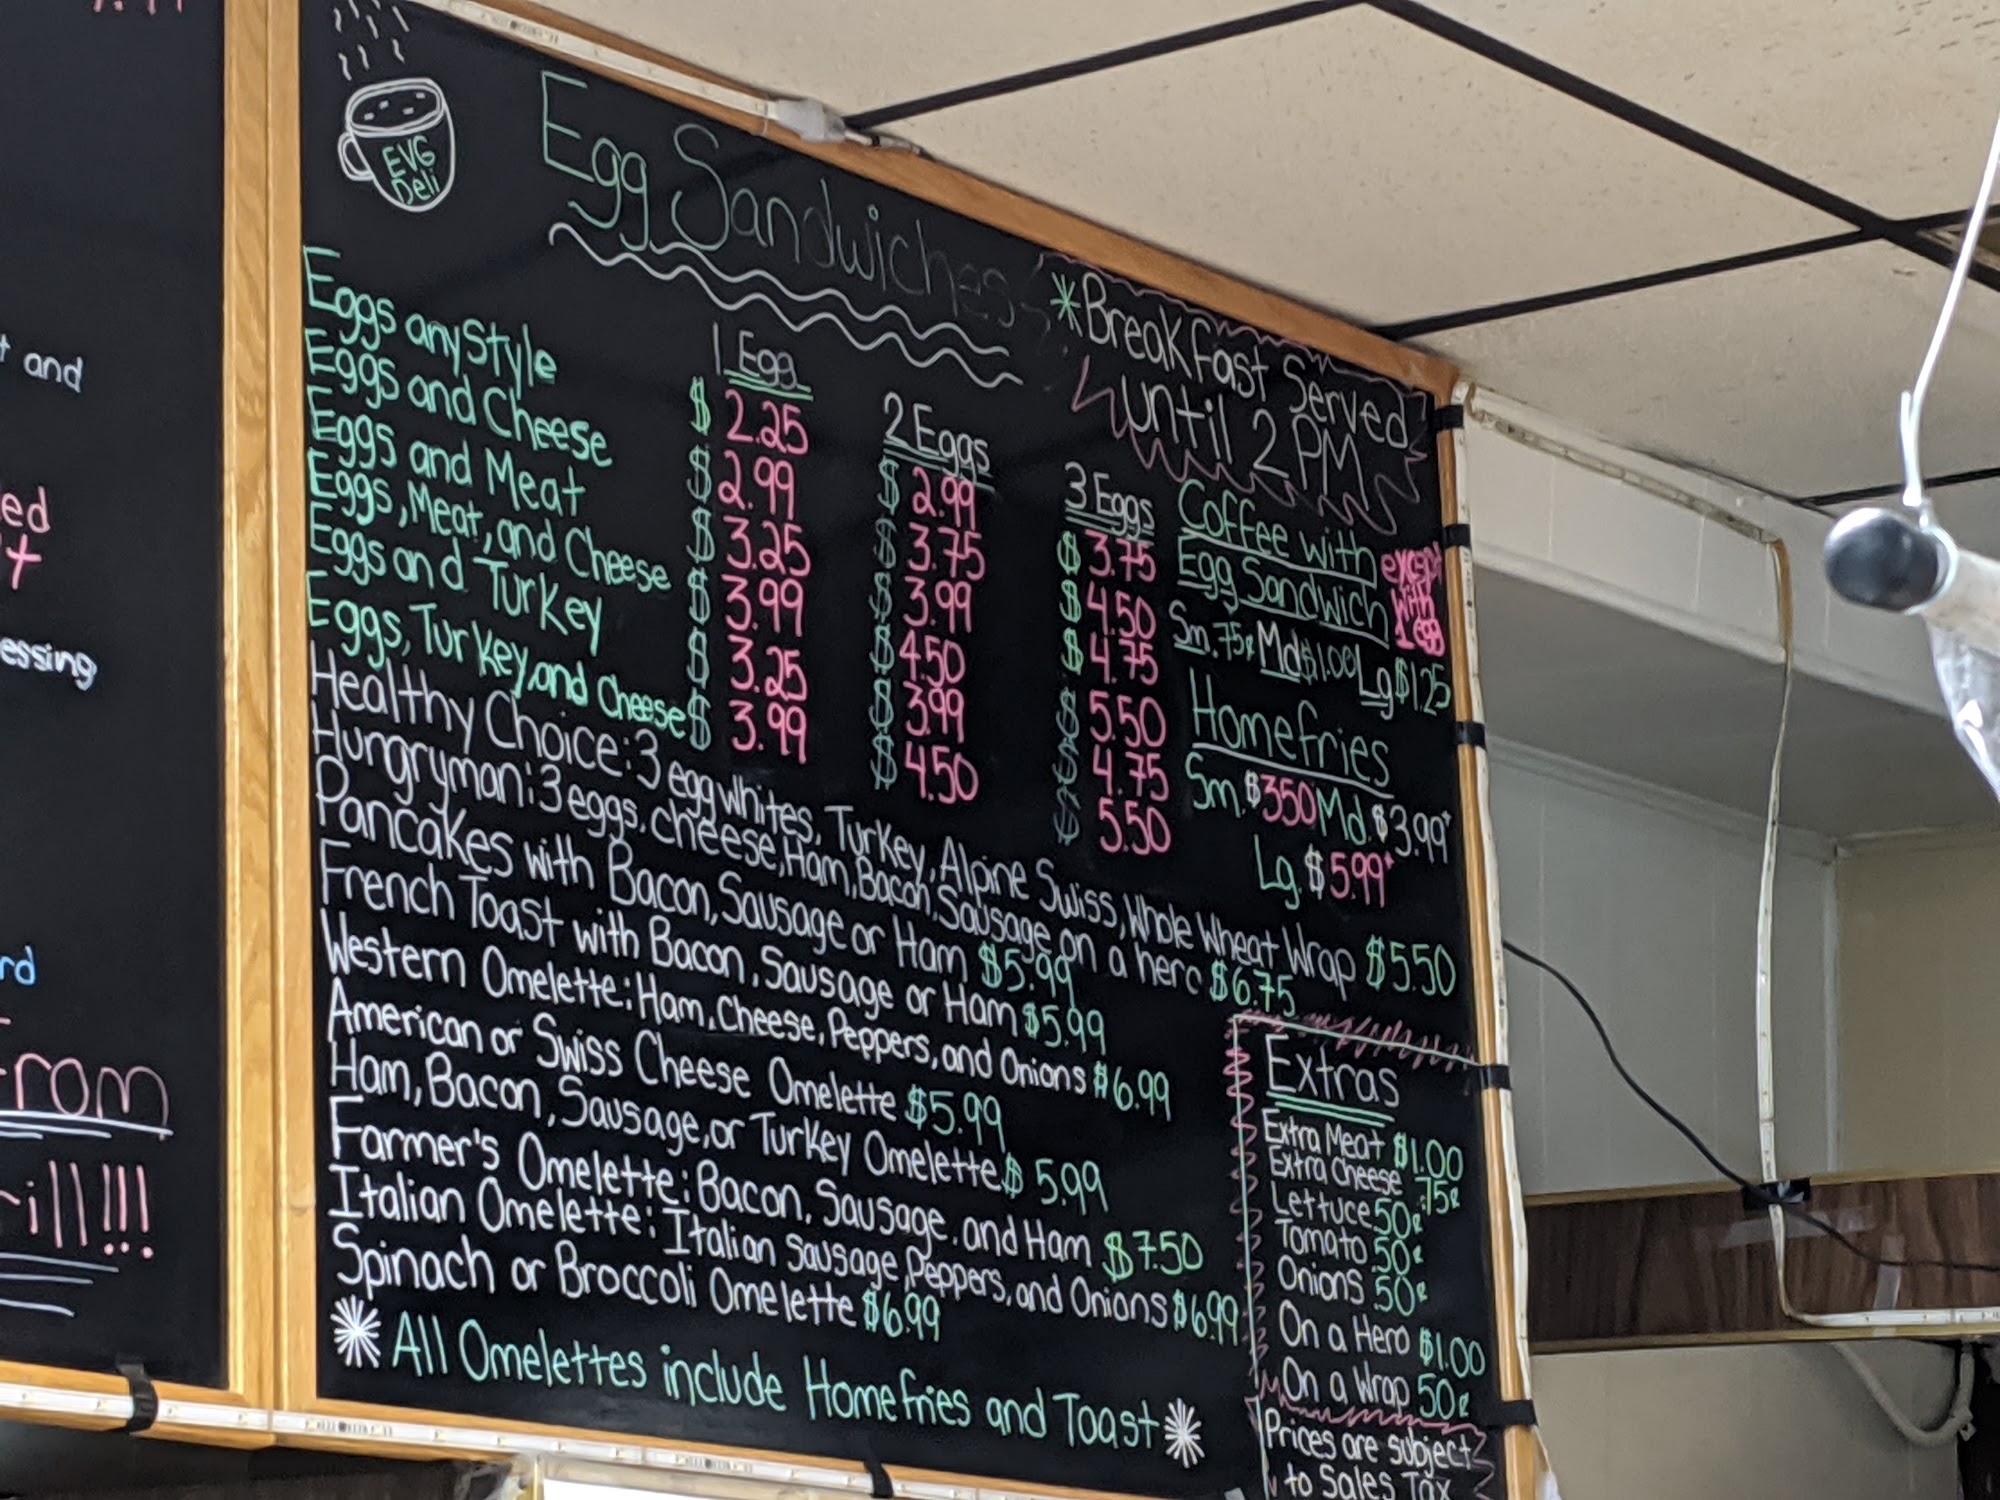 t and
ed
essing
rd
rom
rill!!!
EVG
Deli
Egg Sandwiches
*Breakfast Served
until 2PM
1 Egg 2 Eggs 3 Eggs
Eggs any Style $2.25 $2.99 $3.75
Eggs and Cheese $2.99 $3.75 $4.50
Eggs and Meat $3.25 $3.99 $4.75
Eggs, Meat, and Cheese $3.99 $4.50 $5.50
Eggs and Turkey $3.25 $3.99 $4.75
Eggs, Turkey, and Cheese $3.99 $4.50 $5.50
Coffee with
Egg Sandwich
except
with
1 egg
Sm. 75¢ Md $1.00 Lg $1.25
Homefries
Sm. $350 Md. $3.99+
Lg. $5.99+
Healthy Choice: 3 egg whites, Turkey, Alpine Swiss, Whole Wheat Wrap $5.50
Hungryman: 3 eggs, cheese, Ham, Bacon, Sausage on a hero $6.75
Pancakes with Bacon, Sausage or Ham $5.99
French Toast with Bacon, Sausage or Ham $5.99
Western Omelette: Ham, Cheese, Peppers, and Onions $6.99
American or Swiss Cheese Omelette $5.99
Ham, Bacon, Sausage, or Turkey Omelette $5.99
Farmer's Omelette: Bacon, Sausage, and Ham $7.50
Italian Omelette: Italian Sausage, Peppers, and Onions $6.99
Spinach or Broccoli Omelette $6.99
All Omelettes include Homefries and Toast
Extras
Extra Meat $1.00
Extra Cheese .75¢
Lettuce .50¢
Tomato .50¢
Onions .50¢
On a Hero $1.00
On a Wrap 50¢
Prices are subject
to Sales Tax